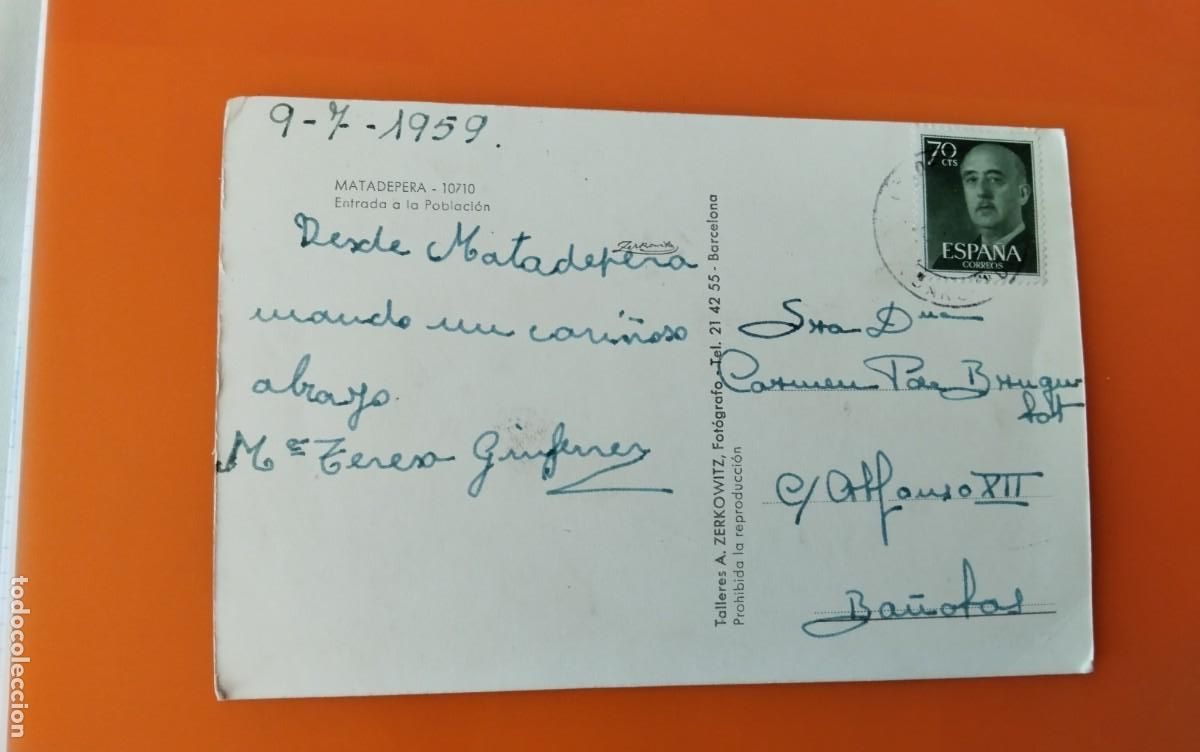 9-7-1959.
MATADEPERA - 10710
Entrada a la Población
Zerkowitz
Desde Matadepera
mando un cariñoso
abrazo
Mª Teresa
Talleres A. ZERKOWITZ, Fotógrafo - Tel. 21 42 55 - Barcelona
Prohibida la reproducción
70
CTS
ESPAÑA
CORREOS
Sra Dña
Carmen
C/ Alfonso XII
Bañolas
todocoleccion